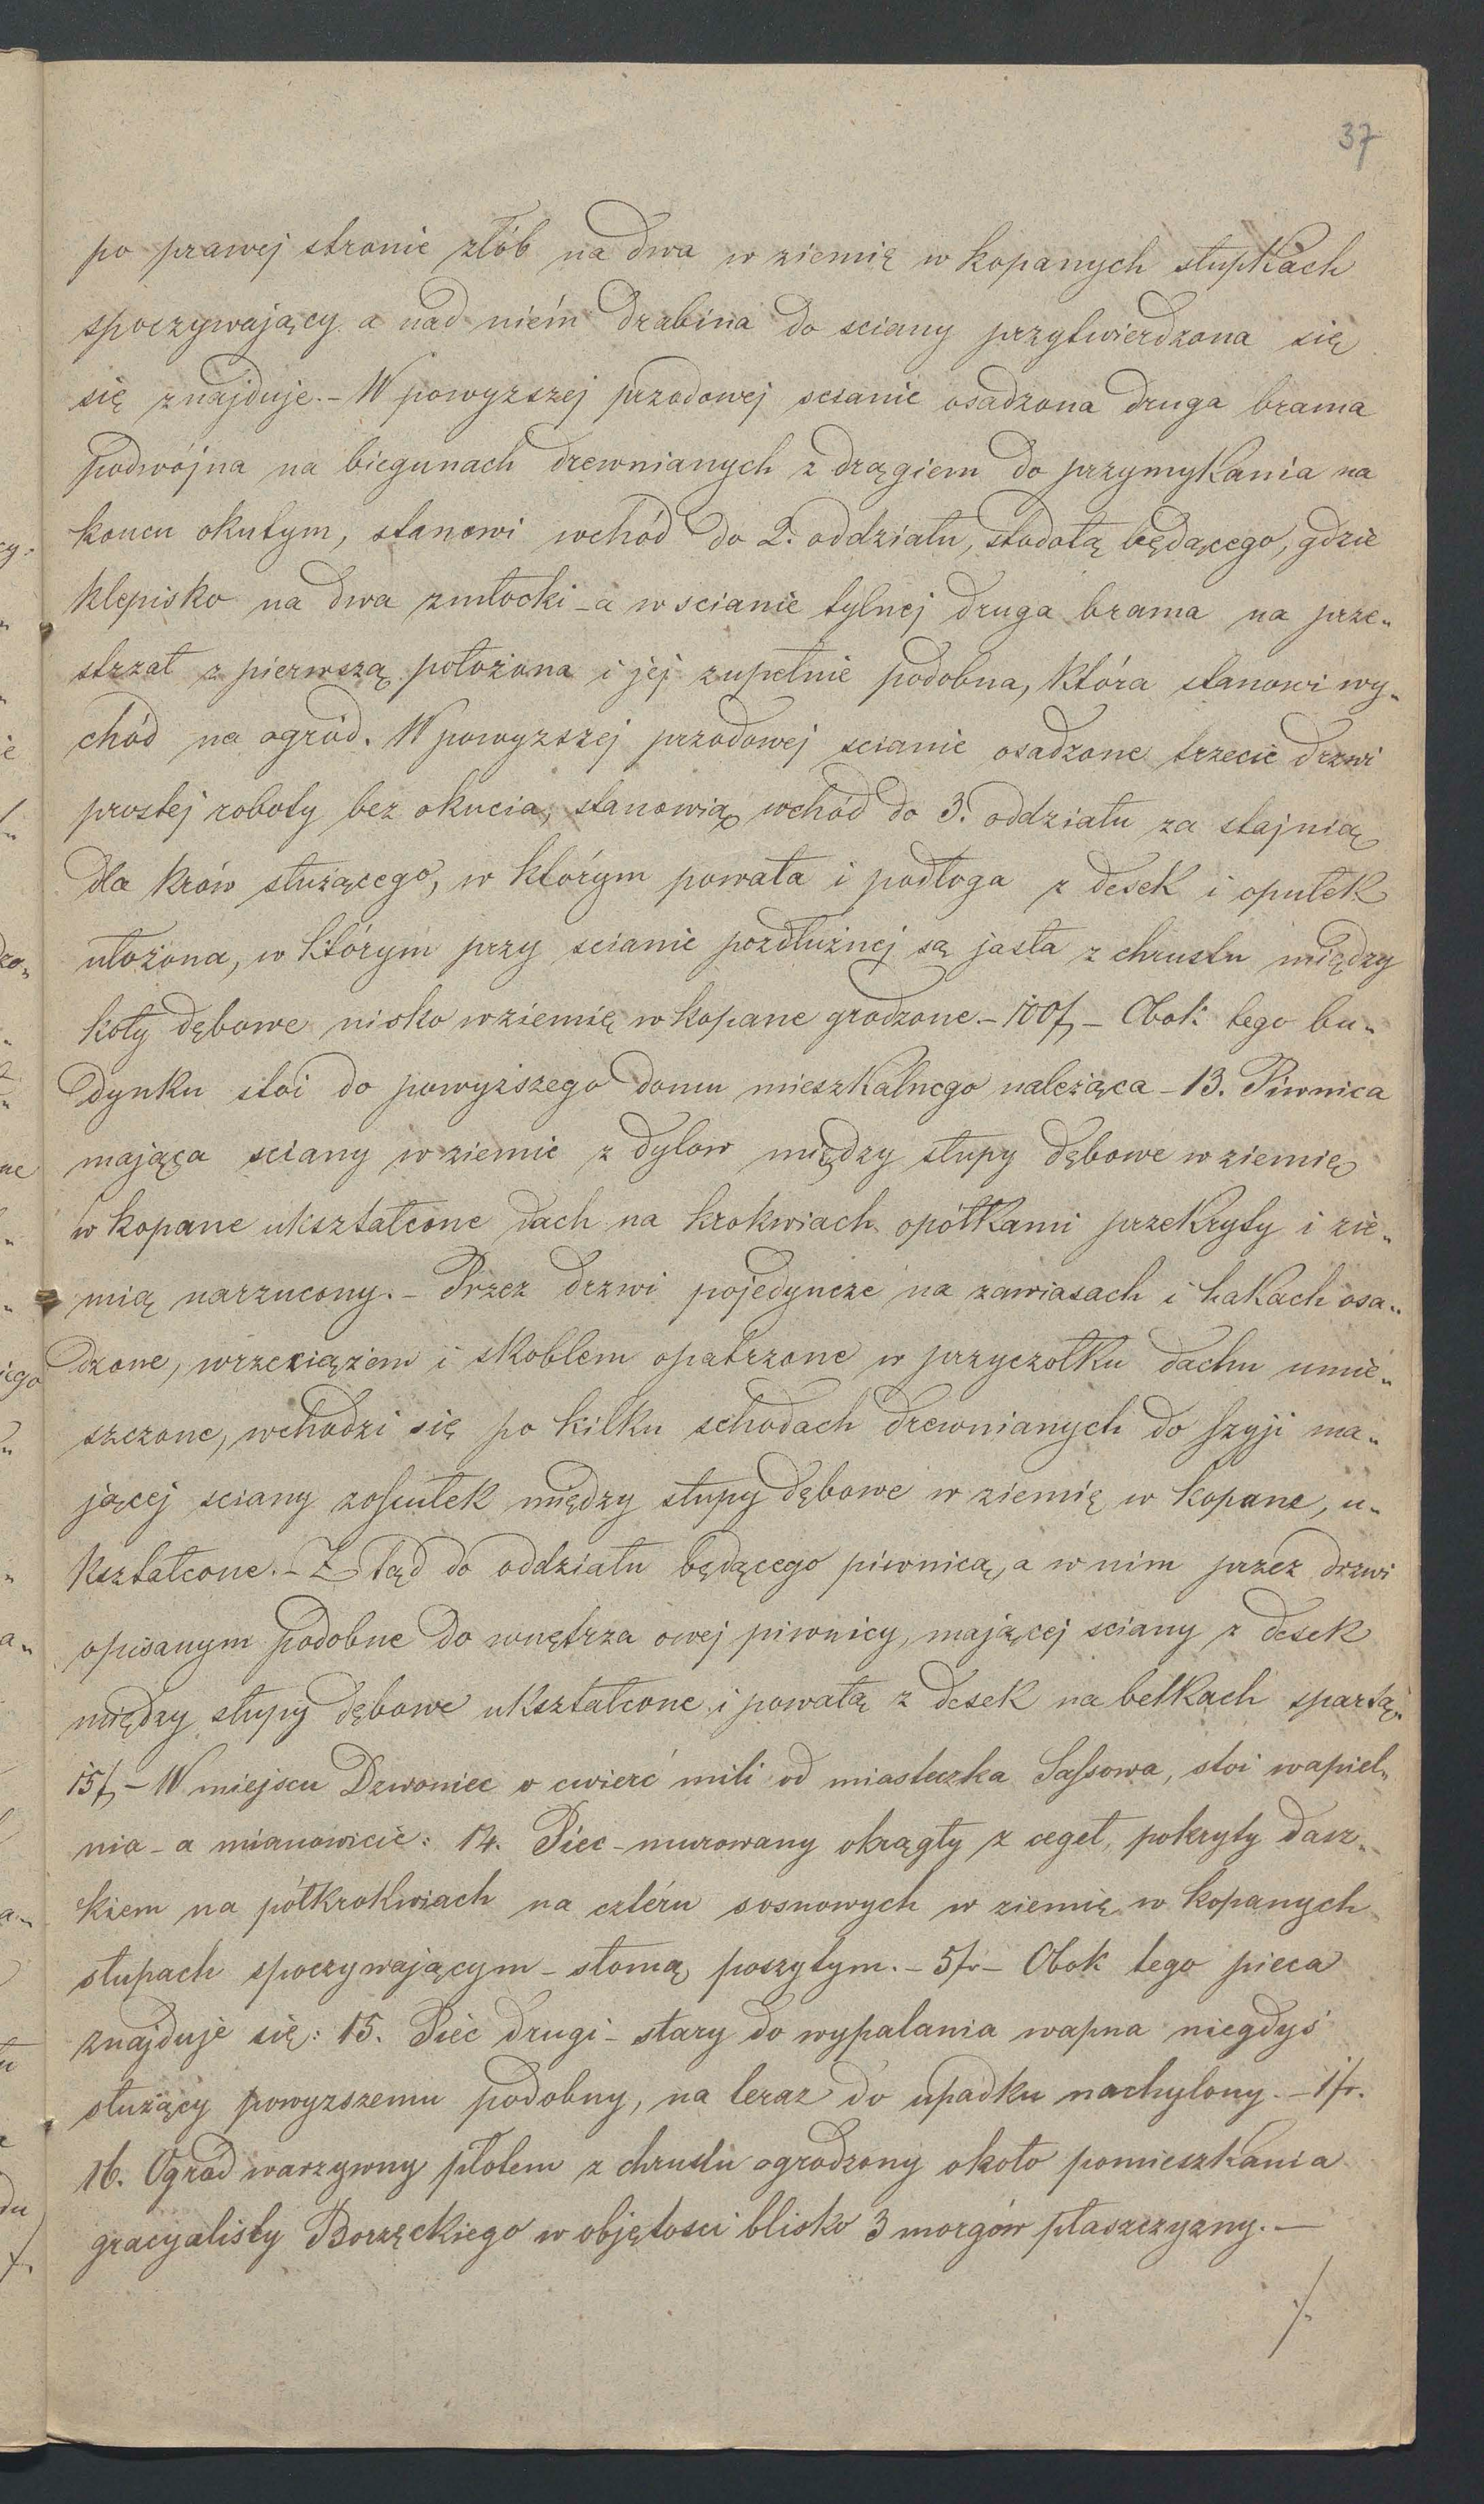 37
po prawej stronie złób na dwa w ziemię w kopanych słupkach
spoczywający a nad niém drabina do sciany przytwierdzona się
się znajduje. - W powyzszej przodowej scianie osadzona druga brama
podwójna na biegunach drewnianych z drągiem do przymykania na
koncu okutym, stanowi wchód do 2. oddziału, stodołą będącego, gdzie
klepisko na dwa zmłocki - a w scianie tylnej druga brama na prze„
strzał z pierwszą położona i jej zupełnie podobna, która stanowi wy„
chód na ogród. W powyzszej przodowej scianie osadzone trzecie drzwi
prostej roboty bez okucia, stanowią wchód do 3. oddziału za stajnią
dla krów służącego, w którym powała i podłoga z desek i opułek
ułożona, w którym przy scianie pozdłużnej są jasła z chrustu między
koły dębowe nisko w ziemię w kopane grodzone. - 100 f - Obok tego bu„
dynku stoi do powyższego domu mieszkalnego należąca - 13. Piwnica
mająca sciany w ziemie z dylow między słupy dębowe w ziemię
w kopane ukształcone dach na krokwiach opółkami przekryty i zie„
mią narzucony. - Przez drzwi pojedyncze na zawiasach i hakach osa„
dzone, wrzeciążem i skoblem opatrzone w przyczołku dachu umie„
szczone, wchodzi się po kilku schodach drewnianych do szyji ma„
jącej sciany zopułek między słupy dębowe w ziemię w kopane, u„
kształcone. - Z tąd do oddziału będącego piwnicą, a w nim przez drzwi
opisanym podobne do wnętrza owej piwnicy, mającej sciany z desek
między słupy dębowe ukształcone i powałą z desek na belkach spartą.
15 f - W miejscu Dzwoniec o cwierć mili od miasteczka Sassowa, stoi wapiel„
nia - a mianowicie: 14. Piec - murowany okrągły z cegeł, pokryty dasz„
kiem na półkrokwiach na cztéru sosnowych w ziemię w kopanych
słupach spoczywającym - słomą poszytym. - 5 fr - Obok tego pieca
znajduje się: 15. Piec drugi - stary do wypalania wapna niegdyś
służący powyzszemu podobny, na teraz do upadku nachylony. - 1 fr.
16. Ogrod warzywny płotem z chrustu ogrodzony około pomieszkania
gracyalisty Borzęckiego w objętosci blisko 3 morgów płaszczyzny. -
./.